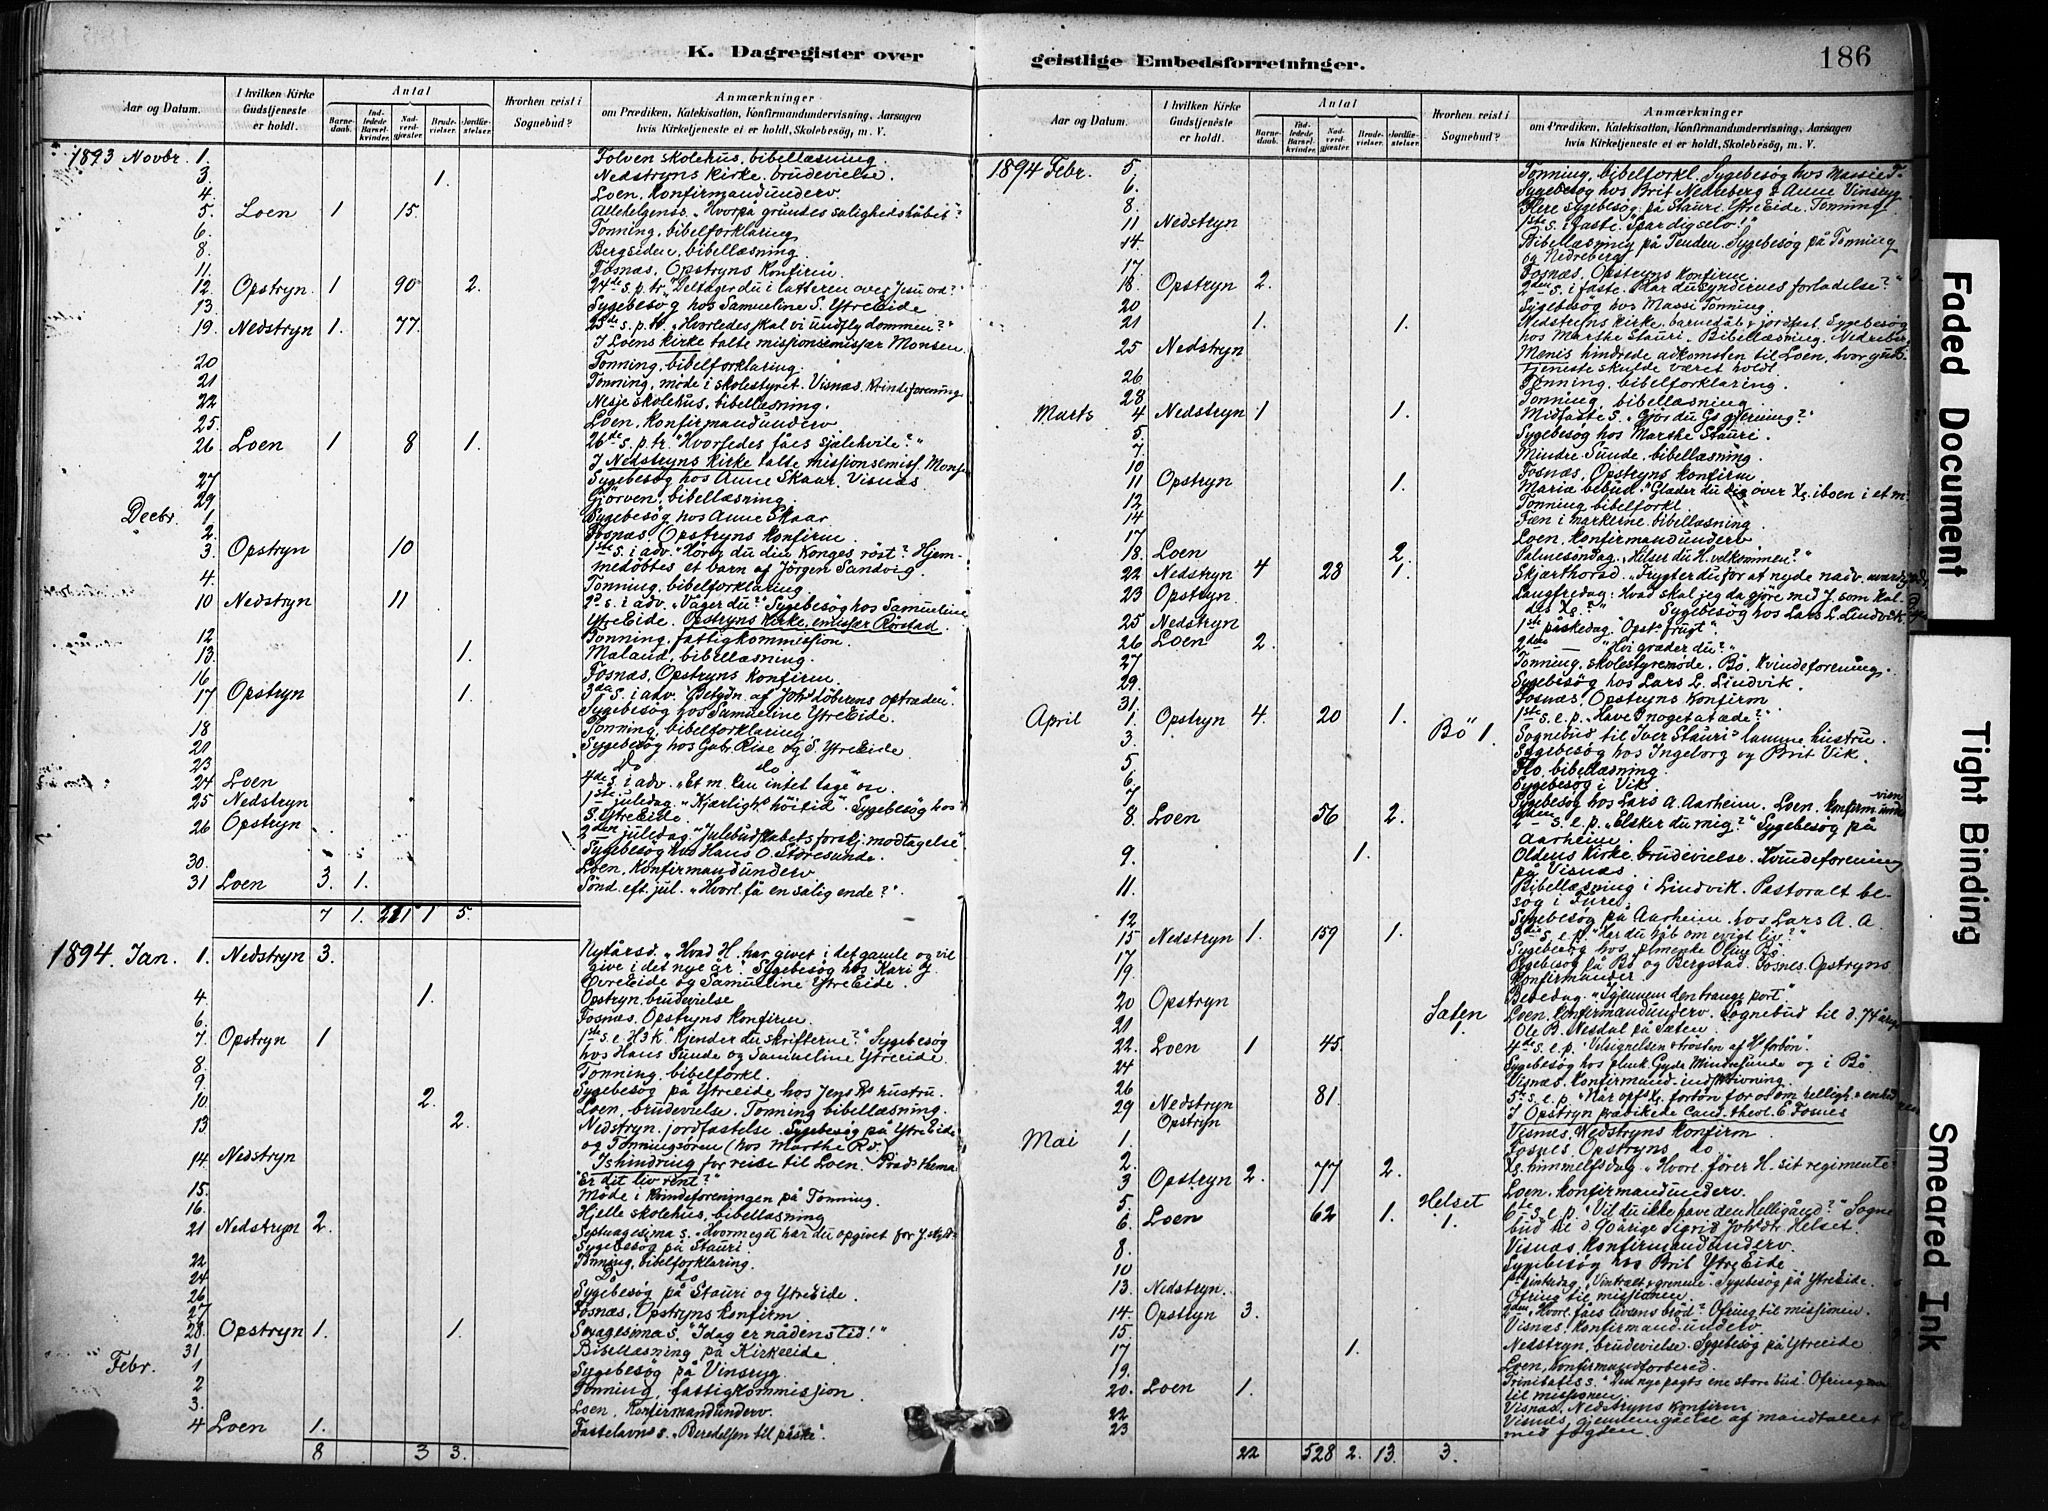 K. Dagregister over
geistlige Embedsforretninger.
186
Aar og Datum.
I hvilken Kirke
Gudstjeneste
er holdt.
Antal
Barne-
daab.
Ind-
ledede
Barsel-
kvinder.
Nad-
verd-
gjæster.
Brude-
vielser.
Jordfæ-
stelser.
Hvorhen reist i
Sognebud?
Anmærkninger
om Prædiken, Katekisation, Konfirmandundervisning, Aarsagen
hvis Kirketjeneste ei er holdt, Skolebesög, m. V.
1893 Novbr. 1. Folven skolehus, bibellæsning.
3. 1. Nedstryns Kirke. brudevielse.
4. Loen, Konfirmandunderv.
5. Loen 1 15 Allehelgenss. "Hvorpå grundes salighedshåbet?"
6. Tonning, bibelforklaring
8. Bergsiden, bibellæsning.
11. Fosnæs, Opstryns Konfirm.
12. Opstryn 1 90 2. 24de s. p. tr. "Deltager du i latteren over Jesu ord?"
13. Sygebesøg hos Samueline S. YtreEide
19. Nedstryn 1. 77. 25de s. p. tr. "Hvorledes skal vi undfly dommen?"
I Loens kirke talte missionsemissær Monsen.
20 Tonning, bibelforklaring.
21 Tonning, møde i skolestyret. Visnæs, Kvindeforening
22 Nesje skolehus, bibellæsning.
25. Loen, Konfirmandunderv
26 Loen 1 8 1. 26de s. p. tr. "Hvorledes fåes sjælehvile?"
I Nedstryns Kirke talte missionsemiss. Monsen
27 Sygebesøg hos Anne Skaar, Visnæs
29. Gjørven, bibellæsning.
Decbr. 1. Sygebesøg hos Anne Skaar
2. Fosnæs. Opstryns Konfirm.
3. Opstryn 10 1ste s. i adv. "Hører du din Konges røst?" Hjem-
medøbtes et barn af Jörgen Sandvig.
4. Tonning, bibelforklaring
10 Nedstryn 11 2den s. i adv. "Våger du?" Sygebesøg hos Samueline
YtreEide. Opstryns Kirke, emissær Rørstad.
12 Tonning, fattigkommission.
13. 1. Maland, bibellæsning.
16 Fosnæs, Opstryns Konfirm.
17 Opstryn 1. 3die s. i adv. Betydn. af Johs Døberens optræden."
Sygebesøg hos Samueline YtreEide.
18 Tonning, bibelforklaring
21 Sygebesøg hos Gab. Rise og S. YtreEide
23 Do do
24 Loen 4de s. i adv. "Et m. kan intet tage" osv.
25 Nedstryn 1ste juledag. "Kjærlighs höitid". Sygebesøg hos
S. YtreEide.
26 Opstryn 2den juledag "Julebudskabets forskj. modtagelse"
Sygebesøg hos Hans O. Storesunde.
30. Loen, Konfirmandunderv
31 Loen 3. 1. Sönd. eft. jul. "Hvorl. få en salig ende?".
7 1. 211 1 5.
1894. Jan. 1. Nedstryn 3. Nytårsd. "Hvad H. har givet i det gamle og vil
give i det nye år". Sygebesøg hos Kari J.
ØvreEide og Samueline YtreEide.
4. 1. Opstryn. brudevielse
6. Fosnæs. Opstryns Konfirm.
7 Opstryn 1 1ste s. e. H3K "Kjender du skrifterne?" Sygebesøg
hos Hans Sunde og Samueline YtreEide.
8. Tonning, bibelforkl.
9. Sygebesøg på YtreEide hos Jens Rs hustru.
10 2. Loen, brudevielse. Tonning bibellæsning.
13 2. Nedstryn. jordfæstelse. Sygebesøg på YtreEide
og Tonningsören (hos Marthe R.).
14. Nedstryn Ishindring for reise til Loen. Præds thema
"Er dit liv rent?"
15. Möde i Kvindeforeningen på Tonning.
16. Hjelle skolehus, bibellæsning
21 Nedstryn 2. Septuagesima s. "Hvormeget har du opgivet for J. skyld"
Sygebesøg på Stauri.
22 Tonning, bibelforklaring.
24 Do do
26 Sygebesøg på Stauri og YtreEide.
27 Fosnæs, Opstryns Konfirm
28. Opstryn 1. 1. Sexagesima s. "Idag er nådens tid!"
31 Bibellæsning på Kirkeeide
Febr. 1 Sygebesøg på Vinsryg
2 Tonning, fattigkommission
3. Loen, Konfirmandunderv.
4 Loen 1. Fastelavns s. "Beredelsen til påske".
8 3 3.
Aar og Datum.
I hvilken Kirke
Gudstjeneste
er holdt.
Antal
Barne-
daab.
Ind-
ledede
Barsel-
kvinder.
Nad-
verd-
gjæster.
Brude-
vielser.
Jordfæ-
stelser.
Hvorhen reist i
Sognebud?
Anmærkninger
om Prædiken, Katekisation, Konfirmandundervisning, Aarsagen
hvis Kirketjeneste ei er holdt, Skolebesög, m. V.
1894 Febr. 5 Tonning, bibelforkl. Sygebesøg hos Massie T.
6. Sygebesøg hos Brit Nedreberg & Anne Vinsryg
8. Flere sygebesøg på Stauri, YtreEide. Tonning
11 Nedstryn 1ste s. i faste. "Spar dig selv".
14. Bibellæsning på Tenden. Sygebesøg på Tonning
og Nedreberg
17 Fosnæs, Opstryns Konfirm.
18. Opstryn 2. 2den s. i faste. "Har du syndernes forladelse?"
20 Sygebesøg hos Massi Tonning.
21 1. 1. Nedstryns Kirke. barnedåb & jordfæst. Sygebesøg
hos Marthe Stauri. Bibellæsning. Nedreberg
25 Nedstryn Menis hindrede adkomsten til Loen, hvor guds-
tjeneste skulde været holdt.
26 Tonning, bibelforklaring.
28 Tonning, bibellæsning.
Marts 4 Nedstryn 1 1. Midfaste s. "Gjör du Gs gjerning?"
5. Sygebesøg hos Marthe Stauri.
7 Mindre Sunde, bibellæsning.
10 Fosnæs, Opstryns Konfirm
11 Opstryn 1. Mariæ bebud. "Glæder du dig over X. iboen i et m."
12 Tonning bibelforkl.
14 Fæn i markerne. bibellæsning
17 Loen, Konfirmandunderv
18. Loen 2. Palmesøndag. "Hilser du H. velkommen?"
22 Nedstryn 4 28 1. Skjærthorsd. "Frygter du for at nyde nadv.
23 Opstryn. Langfredag: Hvad skal jeg da gjöre med J. som kal-
des X.?" Sygebesøg hos Lars L. Lindvik
25 Nedstryn 1ste påskedag. "Opst. frugt".
26 Loen 2. 2den "Hvi græder du?"
27 Tonning, skolestyremøde, Bö, Kvindeforening.
29. Sygebesøg hos Lars L. Lindvik.
31. Fosnæs, Opstryns Konfirm
April 1. Opstryn 4. 20 1. 1ste s. e. p. "Have I noget at æde?"
3. Bö 1. Sognebud til Iver Stauris lamme hustru.
5. Sygebesøg hos Ingeborg og Brit Vik.
6. Flo, bibellæsning.
7 Sygebesøg i Vik
Sygebesøg hos Lars A. Aarheim. Loen. Konfirmandunder-
visn
8. Loen 56 2. 2den s. e. p. "Elsker du mig?" Sygebesøg på
Aarheim.
9. 1. Oldens Kirke. brudevielse. Kvindeforening
på Visnæs.
11. Bibellæsning i Lindvik. Pastoralt be-
søg i Fure.
12 Sygebesøg på Aarheim hos Lars A. A.
15 Nedstryn 1. 159 1. 3die s. e. p. "Har du håb om evigt liv?"
17 Sygebesøg hos Oline Bö.
19. Sygebesøg på Bö og Bergstad. Fosnes. Opstryns
Konfirmander
20 Opstryn Bededag. "Igjennem den trange port".
21 Sæten 1. Loen, Konfirmandunderv. Sognebud til d. 74 årige
Ole B. Nesdal på Sæten.
22. Loen 1 45. 4de s. e. p. "Velsignelsen & trösten af Hs forbön".
24 Sygebesøg hos Gyde Mindresunde og i Bö
26 Visnæs, Konfirmand-indskrivning.
29 Nedstryn 81. 5te s. e. p.
Opstryn I Opstryn prædikede Cand. theol. E Fosnes
Mai 1. Visnæs, Nedstryns Konfirm.
2. Fosnes, Opstryns do
3 Opstryn 2. 77 2. X. himmelfsdag, "Hvorl. fører H. sit regimente?"
5. Loen, Konfirmandunderv.
6. Loen 62 1. Helset 1. 6te s. e. p. "Vil du ikke have den Helligånd?" Sogne-
bud til d. 90 årige Sigrid Johsdtr. Helset.
8. Visnæs, Konfirmandunderv.
10 Sygebesøg hos Brit YtreEide
13. Nedstryn. 1ste pintsedag, "Vintræt & grenene". Sygebesøg på YtreEide.
Ofring til missionen.
14. Opstryn 3. 2den "Hvorl. fåes livsens bröd?" Ofring til missionen.
15. Visnæs, Konfirmandunderv
17 1. Nedstryn, brudevielse. Sygebesøg på YtreEide
19. Loen, Konfirmandforbered.
20. Loen 1. Trinitatis s. "Den nye pagts ene store bud". Ofring
til missionen.
22 Visnæs, Nedstryns Konfirm
23 Visnæs, gjennemgåelse af mandtallet
med fogden.
22 528 2. 13. 3.
Faded Document
Tight Binding
Smeared Ink